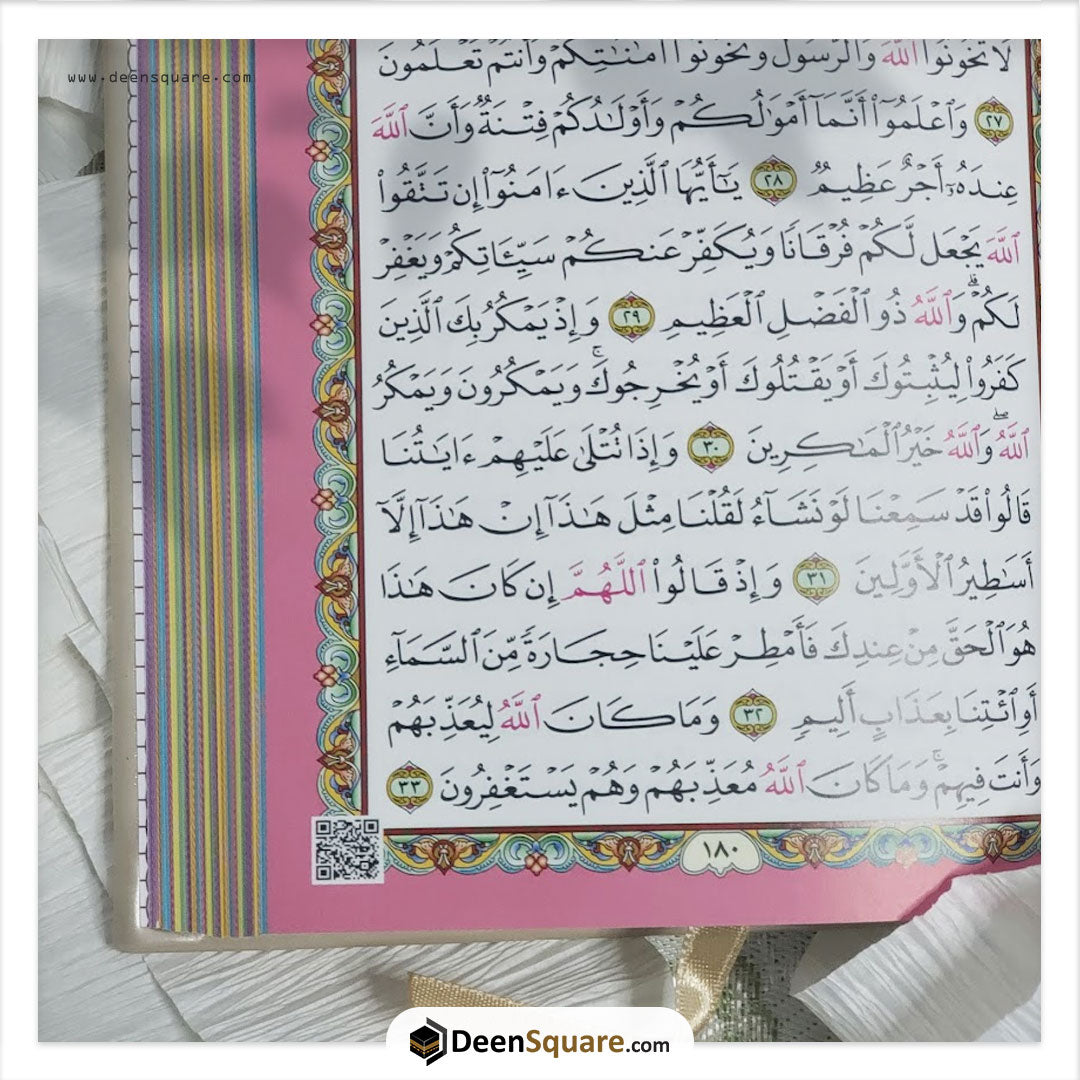 www.deensquare.com
لَا تَخُونُوا۟ ٱللَّهَ وَٱلرَّسُولَ وَتَخُونُوٓا۟ أَمَـٰنَـٰتِكُمْ وَأَنتُمْ تَعْلَمُونَ
٢٧ وَٱعْلَمُوٓا۟ أَنَّمَآ أَمْوَٰلُكُمْ وَأَوْلَـٰدُكُمْ فِتْنَةٌ وَأَنَّ ٱللَّهَ
عِندَهُۥٓ أَجْرٌ عَظِيمٌ ٢٨ يَـٰٓأَيُّهَا ٱلَّذِينَ ءَامَنُوٓا۟ إِن تَتَّقُوا۟
ٱللَّهَ يَجْعَل لَّكُمْ فُرْقَانًا وَيُكَفِّرْ عَنكُمْ سَيِّـَٔاتِكُمْ وَيَغْفِرْ
لَكُمْ ۗ وَٱللَّهُ ذُو ٱلْفَضْلِ ٱلْعَظِيمِ ٢٩ وَإِذْ يَمْكُرُ بِكَ ٱلَّذِينَ
كَفَرُوا۟ لِيُثْبِتُوكَ أَوْ يَقْتُلُوكَ أَوْ يُخْرِجُوكَ ۚ وَيَمْكُرُونَ وَيَمْكُرُ
ٱللَّهُ ۖ وَٱللَّهُ خَيْرُ ٱلْمَـٰكِرِينَ ٣٠ وَإِذَا تُتْلَىٰ عَلَيْهِمْ ءَايَـٰتُنَا
قَالُوا۟ قَدْ سَمِعْنَا لَوْ نَشَآءُ لَقُلْنَا مِثْلَ هَـٰذَآ إِنْ هَـٰذَآ إِلَّآ
أَسَـٰطِيرُ ٱلْأَوَّلِينَ ٣١ وَإِذْ قَالُوا۟ ٱللَّهُمَّ إِن كَانَ هَـٰذَا
هُوَ ٱلْحَقَّ مِنْ عِندِكَ فَأَمْطِرْ عَلَيْنَا حِجَارَةً مِّنَ ٱلسَّمَآءِ
أَوِ ٱئْتِنَا بِعَذَابٍ أَلِيمٍ ٣٢ وَمَا كَانَ ٱللَّهُ لِيُعَذِّبَهُمْ
وَأَنتَ فِيهِمْ ۚ وَمَا كَانَ ٱللَّهُ مُعَذِّبَهُمْ وَهُمْ يَسْتَغْفِرُونَ ٣٣
١٨٠
DeenSquare.com